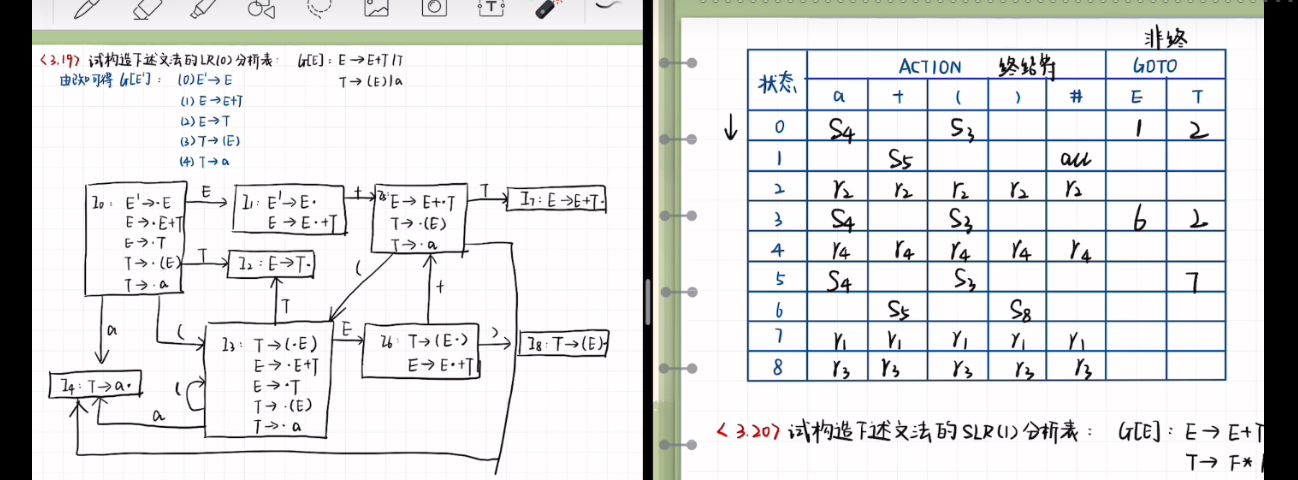 <3.19> 试构造下述文法的LR(0)分析表: G[E]: E→E+T|T
T→(E)|a
由改知可得 G[E']: (0) E'→E
(1) E→E+T
(2) E→T
(3) T→(E)
(4) T→a
I0: E'→·E
E→·E+T
E→·T
T→·(E)
T→·a
E
I1: E'→E·
E→E·+T
+
I5: E→E+·T
T→·(E)
T→·a
T
I7: E→E+T·
T
I2: E→T·
(
+
T
a
(
I3: T→(·E)
E→·E+T
E→·T
T→·(E)
T→·a
E
I6: T→(E·)
E→E·+T
)
I8: T→(E)·
I4: T→a·
(
a
非终
状态 ACTION 终结符 GOTO
a + ( ) # E T
0 S4 S3 1 2
1 S5 acc
2 r2 r2 r2 r2 r2
3 S4 S3 6 2
4 r4 r4 r4 r4 r4
5 S4 S3 7
6 S5 S8
7 r1 r1 r1 r1 r1
8 r3 r3 r3 r3 r3
<3.20> 试构造下述文法的SLR(1)分析表: G[E]: E→E+T
T→F*